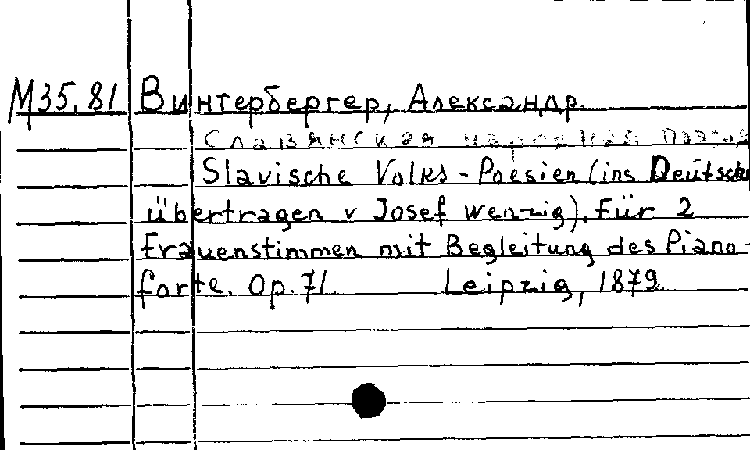 М35.81 Винтербергер, Александр.
Славянская народная поэзия
Slavische Volks-Poesien (ins Deutsche
übertragen v Josef Wenzig). Für 2
Frauenstimmen mit Begleitung des Piano-
forte. Op. 71. Leipzig, 1879